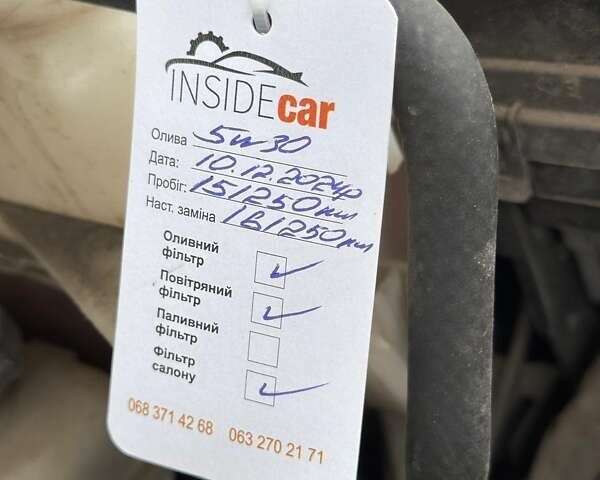 INSIDEcar
Олива 5w30
Дата: 10.12.2024р
Пробіг: 151250км
Наст. заміна 161250км
Оливний
фільтр
Повітряний
фільтр
Паливний
фільтр
Фільтр
салону
068 371 42 68 063 270 21 71